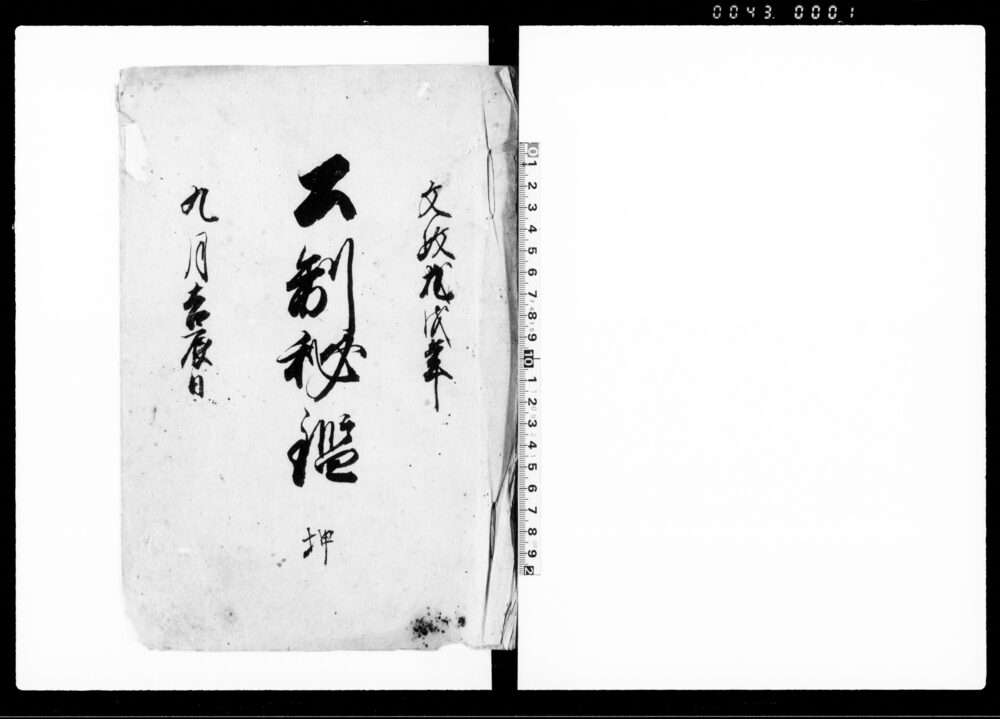 0043. 0001
文政九戌年
公制秘鑑
坤
九月吉辰日
0 1 2 3 4 5 6 7 8 9 10 1 2 3 4 5 6 7 8 9 2